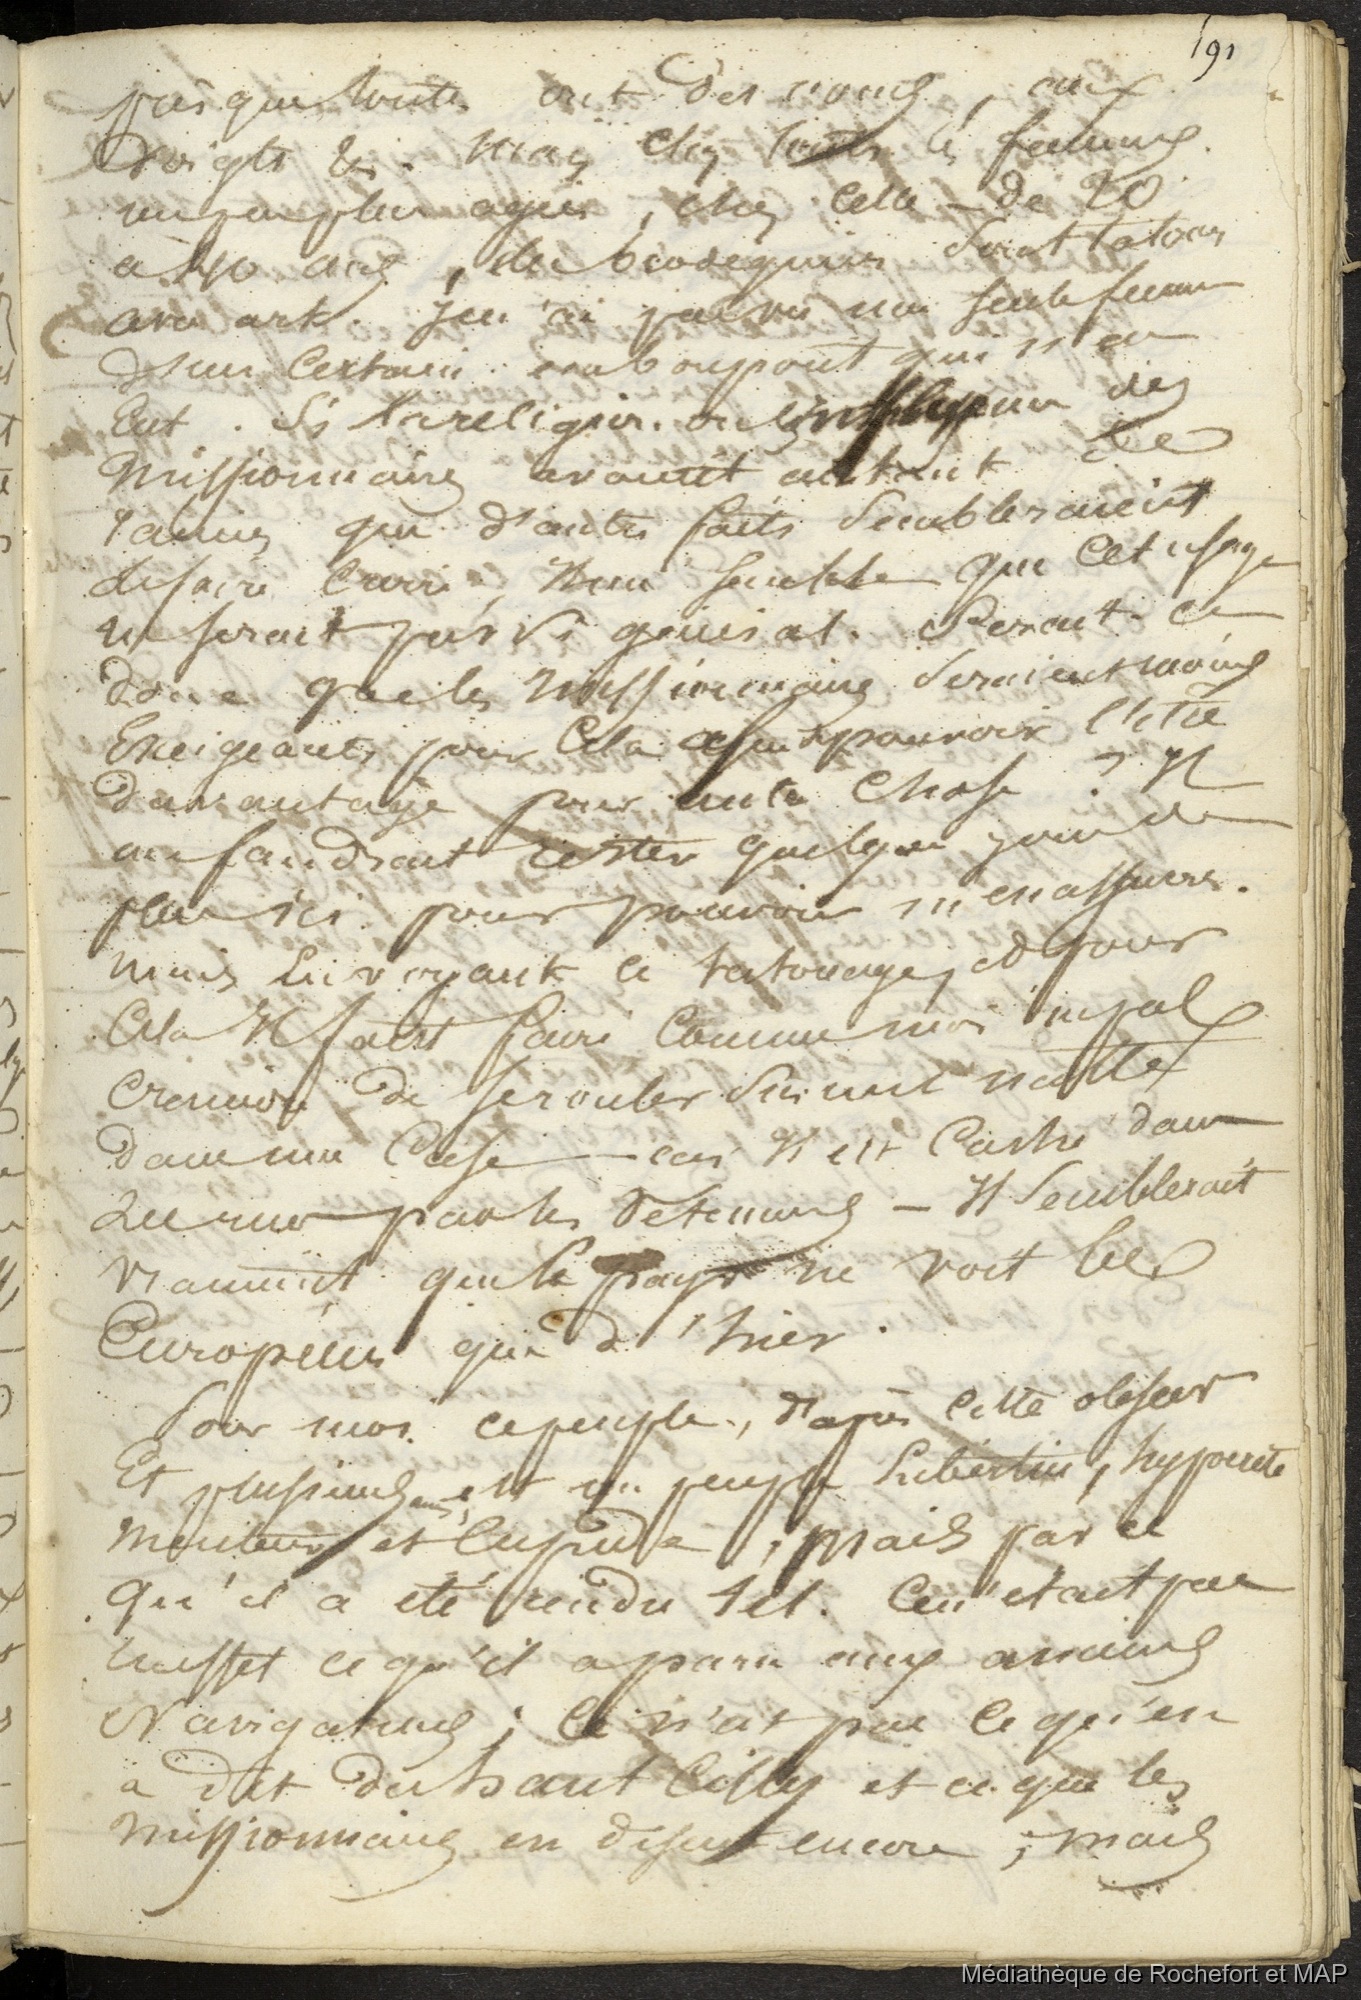 191
presque toutes ont des noms, aux
doigts &. Mais chez toutes les femmes
un peu plus agées, chez celle - de 20
a 40 ans, des brodequins sont tatoués
avec art. Je n'ai pas vu une seule femme
d'un certain embonpoint qui n'en
eut. Si la religion ou des
Missionnaires avaient autant de
racines que d'autres faits sembleraient
le faire croire, il me semble que cet usage
ne serait pas si général. Serait-ce
donc que les Missionnaires seraient moins
Exeigeants pour cela afin de pouvoir l'être
davantage pour autre chose ? Il
me faudrait rester quelque jours de
plus ici pour pouvoir m'en assurer.
Mais en voyant ce tatouage, et pour
cela Il faut faire comme moi ne pas
craindre de se rouler sur une natte
dans une case - car Il est caché dans
les rues par les vêtements - Il semblerait
vraiment que le pays ne voit les
Européens que d'hier.
Pour moi ce peuple, d'après cette observ
Et plusieurs autres, est un peuple Libertin, hypocrite
menteur et cupide, mais par ce
qu'il a été rendu tel. Ce n'était pas
en effet ce qu'il a paru aux anciens
Navigateurs ; Ce n'est pas ce qu'en
a dit duhaut Cilly et ce que les
Missionnaires en disent encore ; mais
Médiathèque de Rochefort et MAP